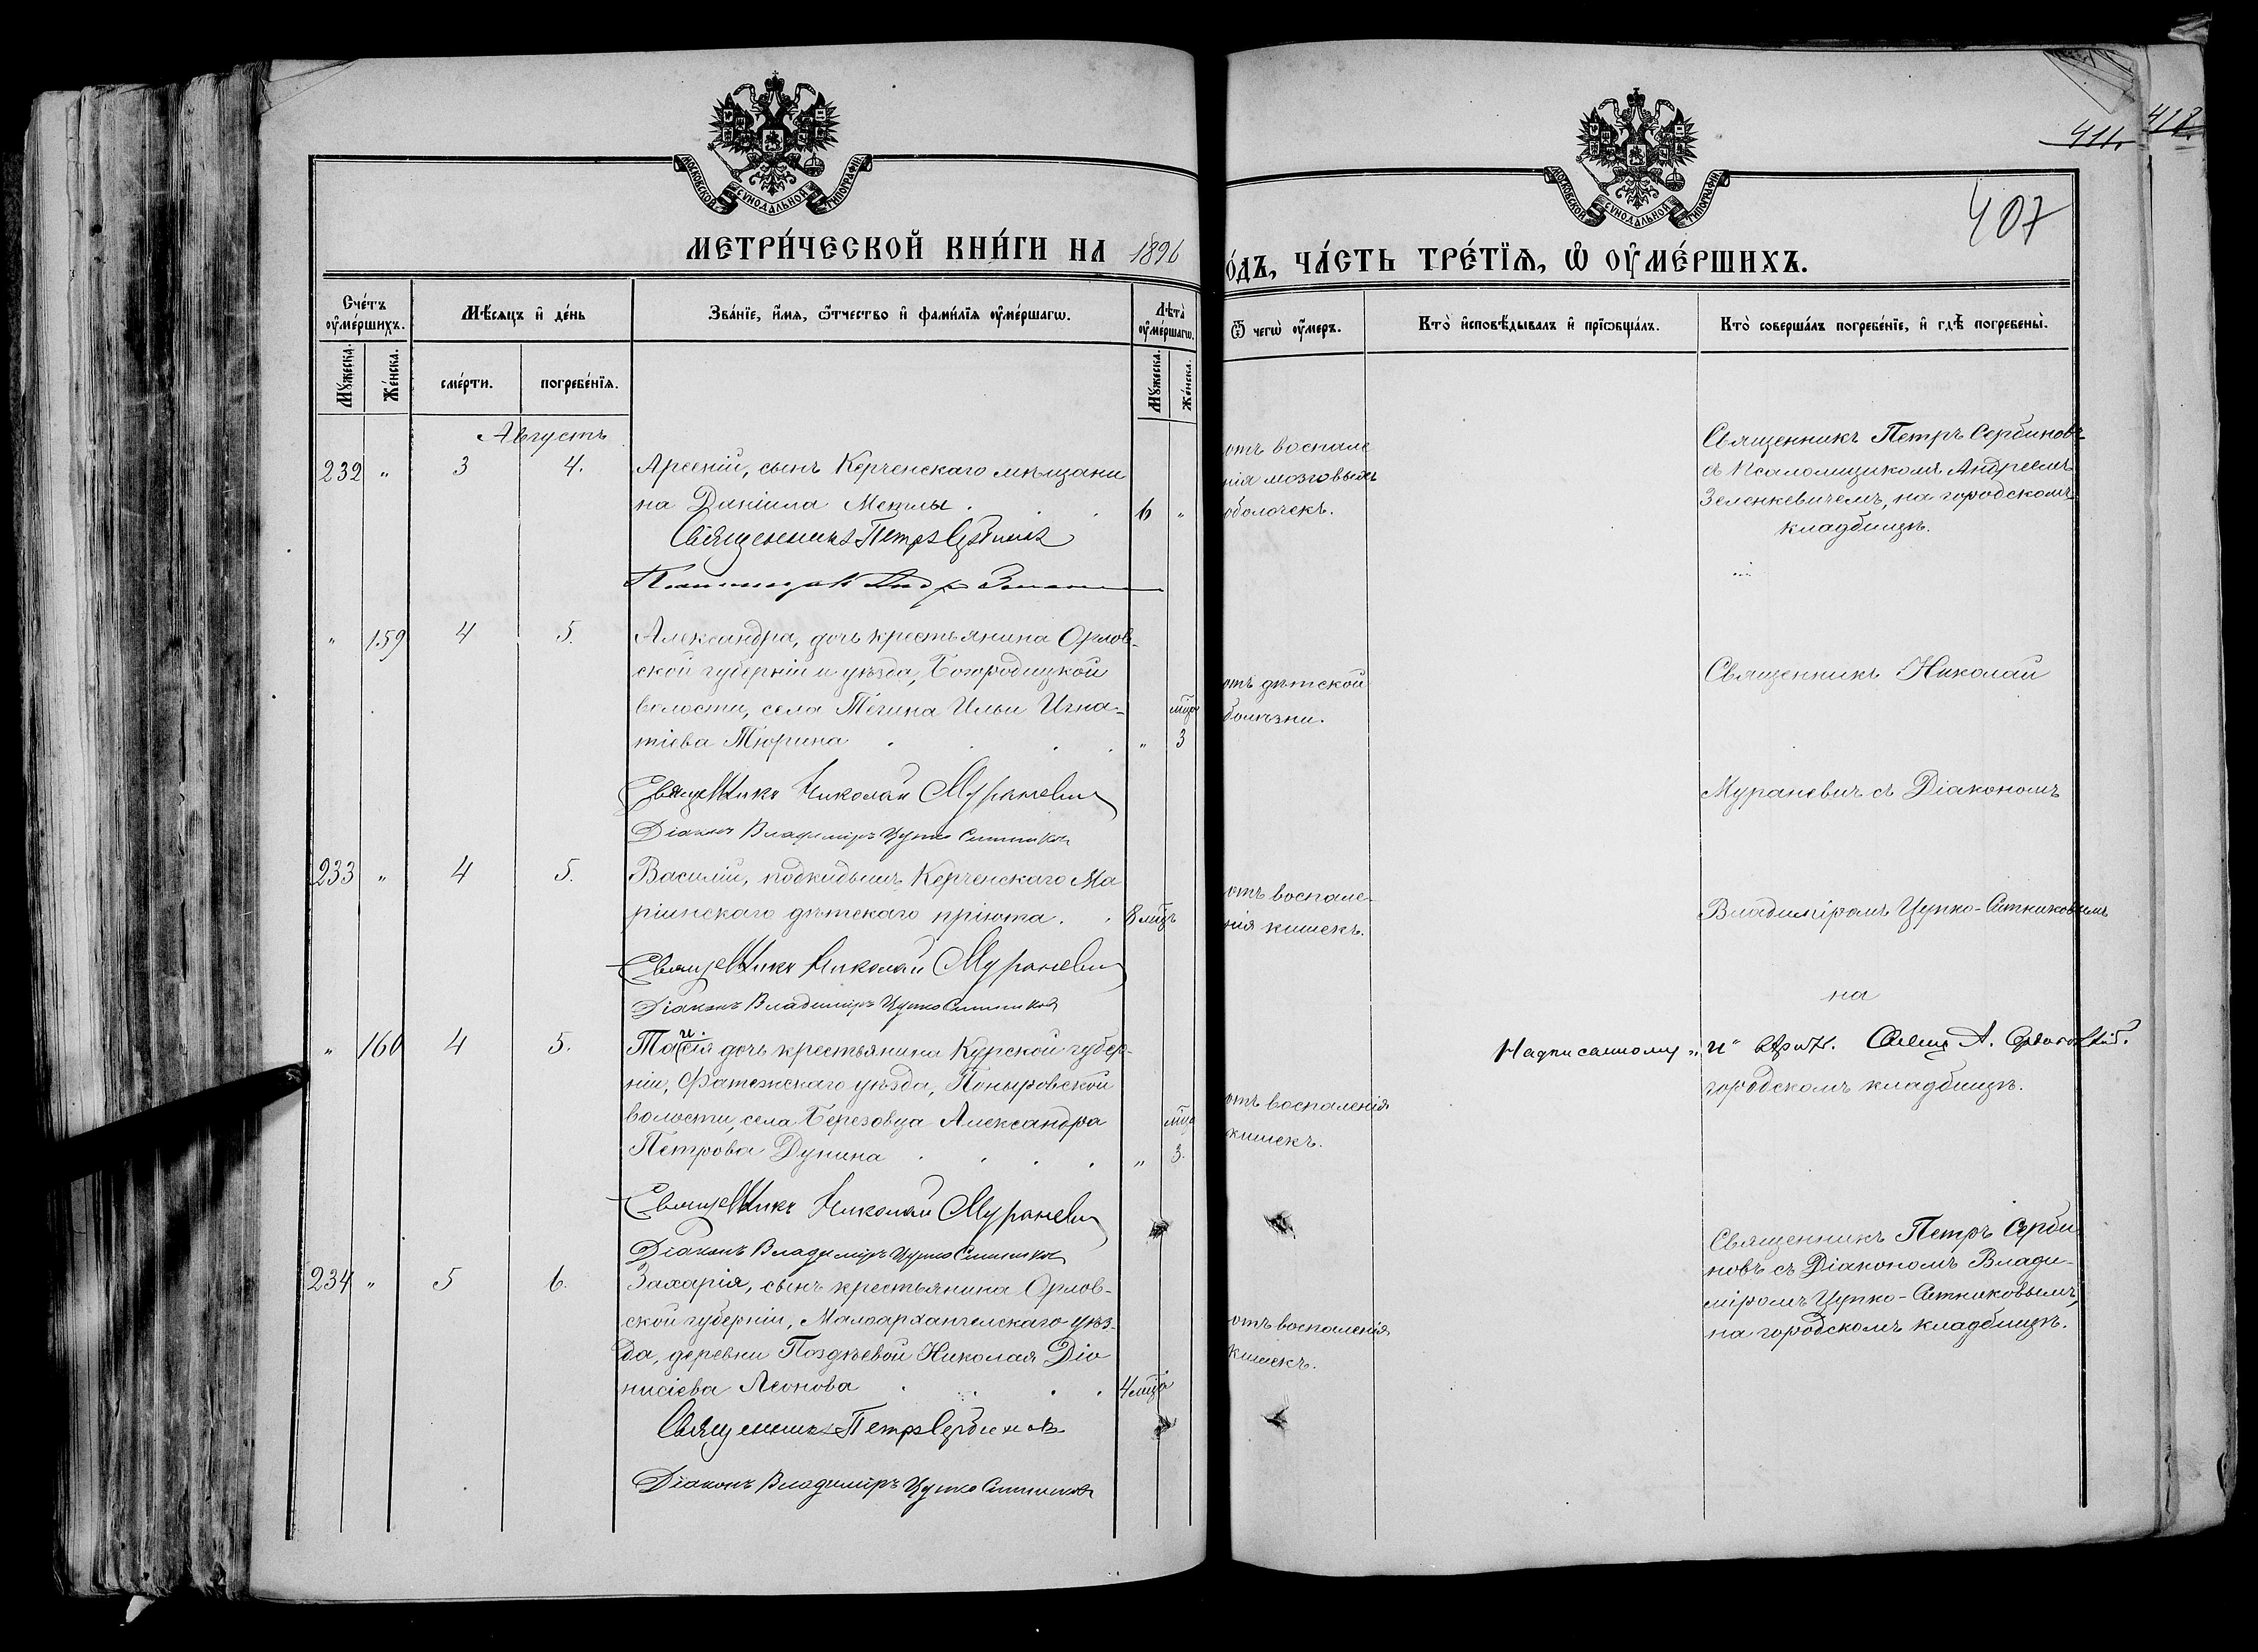 411.
412
407
МОСКОВСКОЙ СѴНОДАЛЬНОЙ ТИПОГРАФІИ
МОСКОВСКОЙ СѴНОДАЛЬНОЙ ТИПОГРАФІИ
МЕТРИ́ЧЕСКОЙ КНИ́ГИ НА 1896
о́дъ, ЧА́СТЬ ТРЕ́ТЇѦ, Ѡ ОУ҆МЕ́РШИХЪ.
Сче́тъ оу҆ме́ршихъ.
Мꙋ́жеска.
Же́нска.
Мѣ́сяцъ и҆ де́нь
сме́рти.
погребе́нїѧ.
Зва́нїе, и҆́мѧ, ѻ҆́тчество и҆ фами́лїѧ оу҆ме́ршагѡ.
Лѣ́та оу҆ме́ршагѡ.
Мꙋ́жеска.
Же́нска.
Ѿ чегѡ̀ оу҆́меръ.
Кто̀ и҆сповѣ́дывалъ и҆ прїѡбща́лъ.
Кто̀ соверша́лъ погребе́нїе, и҆ гдѣ̀ погребены̀.
Августъ
232 " 3 4. Арсеній, сынъ Керченскаго мѣщани
на Даніила Мекилы . . . 6 "
Священникъ Петръ Сербиновъ
отъ воспале
нія мозговыхъ
оболочекъ.
Священникъ Петръ Сербиновъ
съ Псаломщикомъ Андреемъ
Зеленкевичемъ, на городскомъ
кладбищѣ.
" 159 4 5. Александра, дочь крестьянина Орлов-
ской губерніи и уѣзда, Богородицкой
волости, села Тёгина Ильи Игна-
тіева Тюрина . . . . " мцъ 3
Священникъ Николай Мураневич
Діаконъ Владиміръ Цупко Ситников
отъ дѣтской
болѣзни.
Священникъ Николай
Мураневич съ Діакономъ
233 " 4 5. Василій, подкидышъ Керченскаго Ма
ріинскаго дѣтскаго пріюта. . 8 мцъ
Священникъ Николай Мураневич
Діаконъ Владиміръ Цупко Ситников
отъ воспале-
нія кишекъ.
Владиміромъ Цупко-Ситниковымъ
на
" 160 4 5. Таисія дочь крестьянина Курской губер-
ніи, Фатежскаго уѣзда, Поныровской
волости, села Березовца Александра
Петрова Дунина . . . . " мца 3.
Священникъ Николай Мураневич
Діаконъ Владиміръ Цупко Ситников
отъ воспаленія
кишекъ.
Надписанному „и"
городскомъ кладбищѣ.
234 " 5 6. Захарія, сынъ крестьянина Орлов-
ской губерніи, Малоархангелскаго уѣз-
да, деревни Поздѣевой Николая Діо
нисіева Леонова . . . . 4 мца
Священникъ Петръ Сербиновъ
Діаконъ Владиміръ Цупко Ситников
отъ воспаленія
кишекъ.
Священникъ Петръ Серби
новъ съ Діакономъ Влади-
міромъ Цупко-Ситниковымъ,
на городскомъ кладбищѣ.